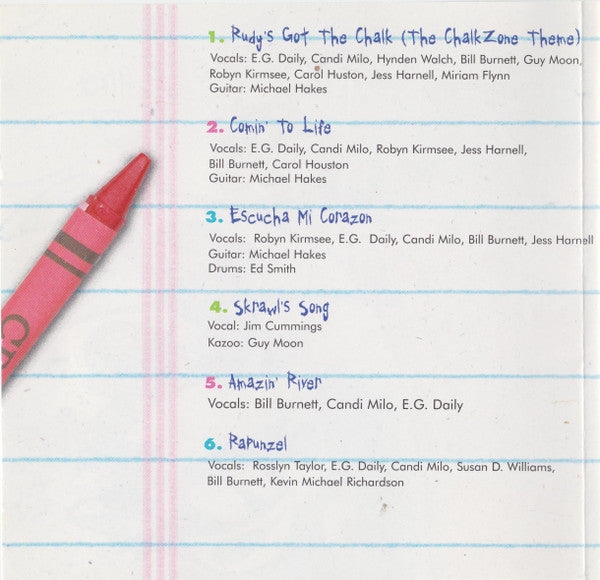 1. Rudy's Got The Chalk (The ChalkZone Theme)
Vocals: E.G. Daily, Candi Milo, Hynden Walch, Bill Burnett, Guy Moon,
Robyn Kirmsee, Carol Huston, Jess Harnell, Miriam Flynn
Guitar: Michael Hakes
2. Comin' To Life
Vocals: E.G. Daily, Candi Milo, Robyn Kirmsee, Jess Harnell,
Bill Burnett, Carol Houston
Guitar: Michael Hakes
3. Escucha Mi Corazon
Vocals: Robyn Kirmsee, E.G. Daily, Candi Milo, Bill Burnett, Jess Harnell
Guitar: Michael Hakes
Drums: Ed Smith
4. Skrawl's Song
Vocal: Jim Cummings
Kazoo: Guy Moon
5. Amazin' River
Vocals: Bill Burnett, Candi Milo, E.G. Daily
6. Rapunzel
Vocals: Rosslyn Taylor, E.G. Daily, Candi Milo, Susan D. Williams,
Bill Burnett, Kevin Michael Richardson